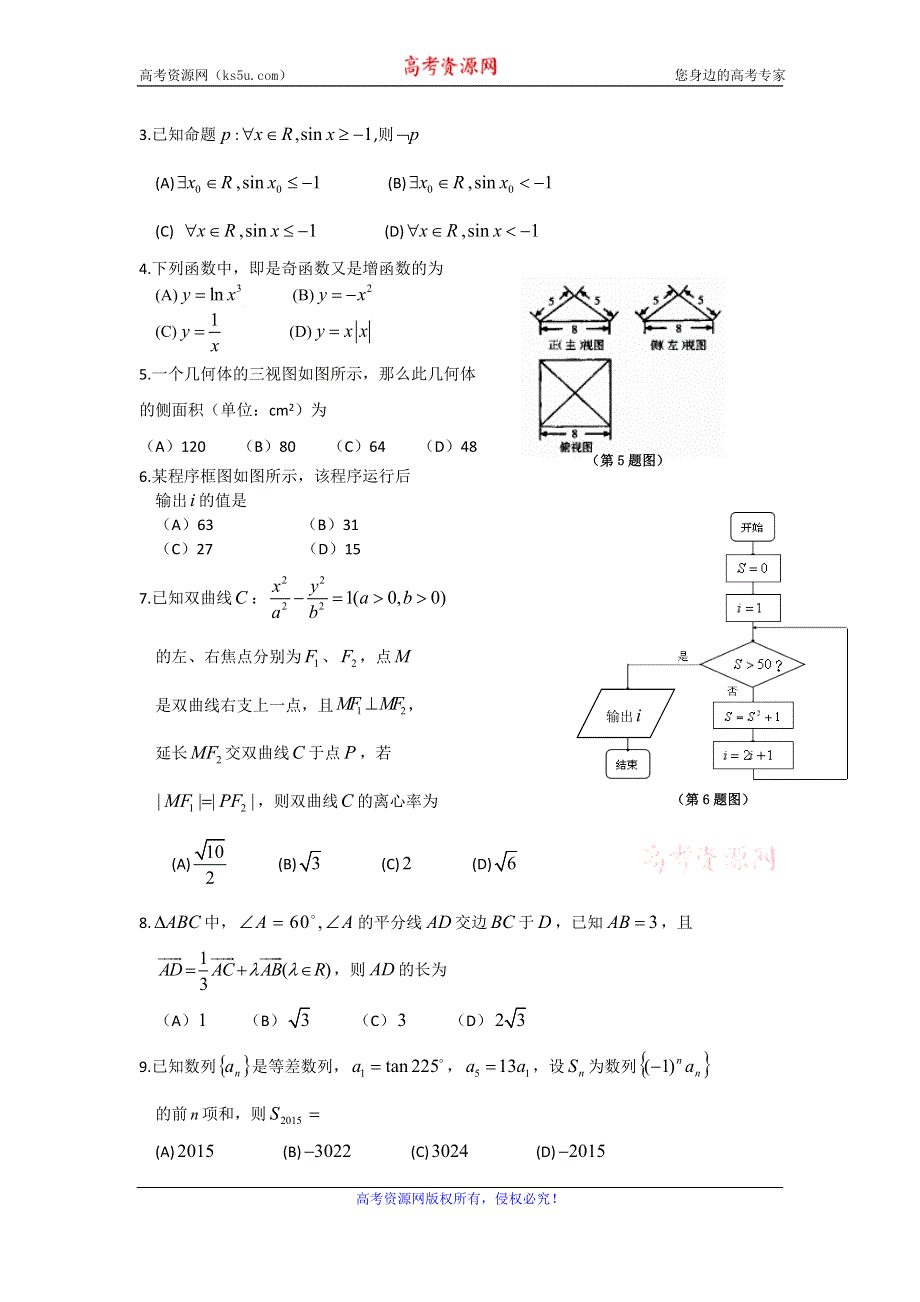 高考资源网（ks5u.com） 高考资源网 您身边的高考专家
3.已知命题 p:∀x∈R,sin x≥−1,则¬p
(A)∃x₀∈R,sin x₀≤−1 (B)∃x₀∈R,sin x₀<−1
(C) ∀x∈R,sin x≤−1 (D)∀x∈R,sin x<−1
4.下列函数中，即是奇函数又是增函数的为
(A) y=ln x³ (B) y=−x²
(C) y=1/x (D) y=x|x|
5.一个几何体的三视图如图所示，那么此几何体
的侧面积（单位：cm²）为
（A）120 （B）80 （C）64 （D）48
5 5 5 5
8 8
正(主)视图 侧(左)视图
8
俯视图
（第5题图）
6.某程序框图如图所示，该程序运行后
输出 i 的值是
（A）63 （B）31
（C）27 （D）15
开始
S=0
i=1
是 S>50？
否
输出 i S=S²+1
结束 i=2i+1
（第6题图）
7.已知双曲线 C：x²/a²−y²/b²=1(a>0,b>0)
的左、右焦点分别为F₁、F₂，点M
是双曲线右支上一点，且MF₁⊥MF₂，
延长MF₂交双曲线C于点P，若
|MF₁|=|PF₂|，则双曲线C的离心率为
(A)√10/2 (B)√3 (C)2 (D)√6
高考资源网
8.ΔABC中，∠A=60°,∠A的平分线AD交边BC于D，已知AB=3，且
AD=1/3AC+λAB(λ∈R)，则AD的长为
（A）1 （B）√3 （C）3 （D）2√3
9.已知数列{aₙ}是等差数列，a₁=tan225°，a₅=13a₁，设Sₙ为数列{(−1)ⁿaₙ}
的前n项和，则S₂₀₁₅=
(A)2015 (B)−3022 (C)3024 (D)−2015
高考资源网版权所有，侵权必究！